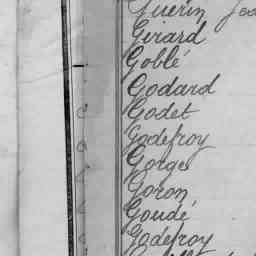 Guérin Jea
Girard
Goblé
Godard
Godet
Godefroy
Gorge
Goron
Goudé
Godefroy